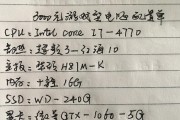 3000元游戏型电脑配置单
CPU: Intel Core I7-4770
散热: 超频3-
主板: 华硕H81M-K
内存: 16G
SSD: WD-240G
显卡: GTX-1060-5G